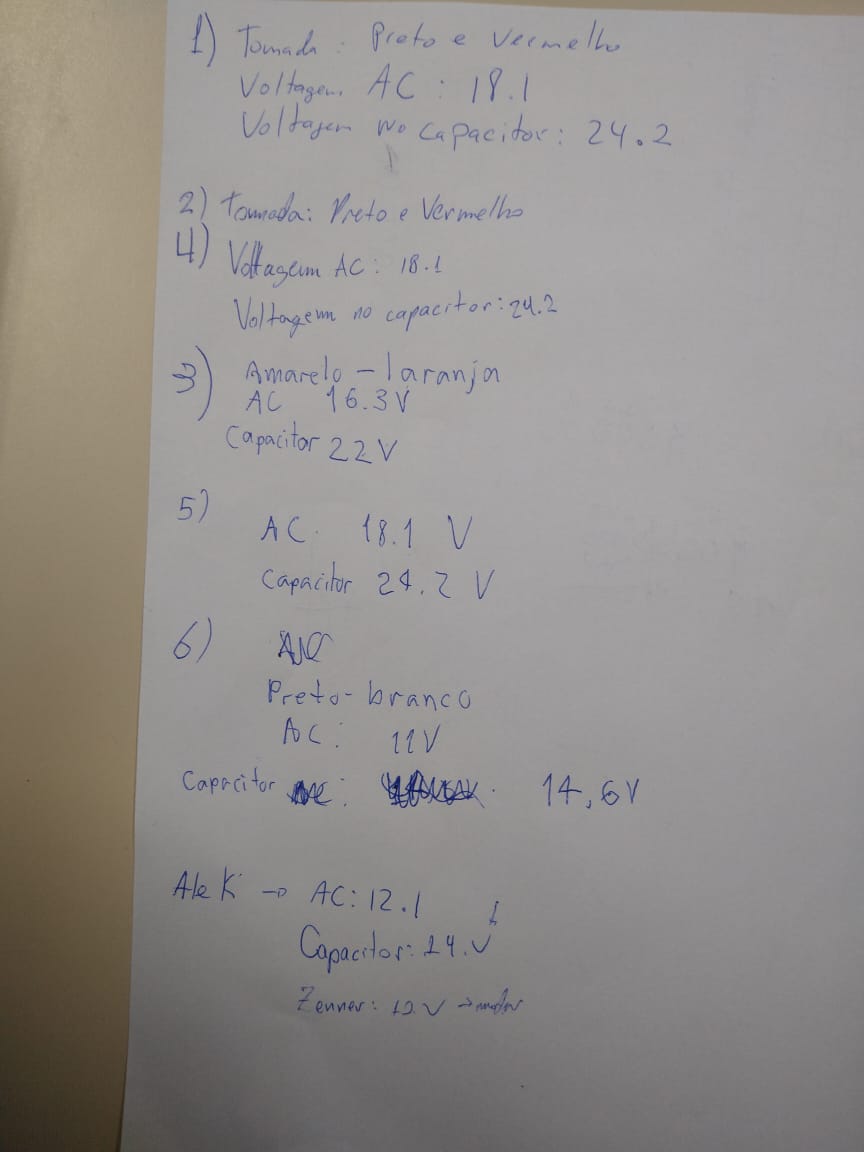 1) Tomada : Preto e Vermelho
Voltagem AC : 18.1
Voltagem no capacitor: 24.2
2) Tomada: Preto e Vermelho
4) Voltagem AC: 18.1
Voltagem no capacitor: 24.2
3) Amarelo - laranja
AC 16.3V
Capacitor 22V
5)
AC. 18.1 V
Capacitor 24.2 V
6)
Preto-branco
AC: 11V
Capacitor : 14,6V
Ale K → AC: 12.1
Capacitor: 14.V
Zenner: 12V → motor